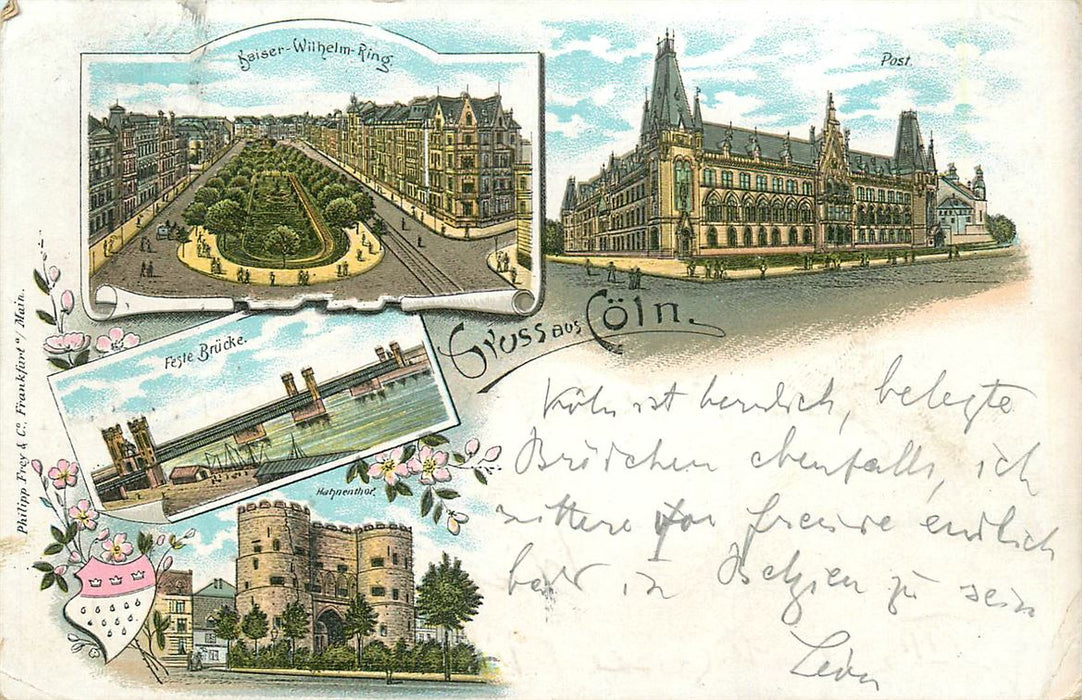 Kaiser-Wilhelm-Ring
Post.
Feste Brücke.
Gruss aus Cöln.
Hahnenthor.
Philipp Frey & Co., Frankfurt a/Main.
Köln ist herrlich, belegte
Brödchen ebenfalls, ich
zittere vor Freude endlich
bald in Belgien zu sein